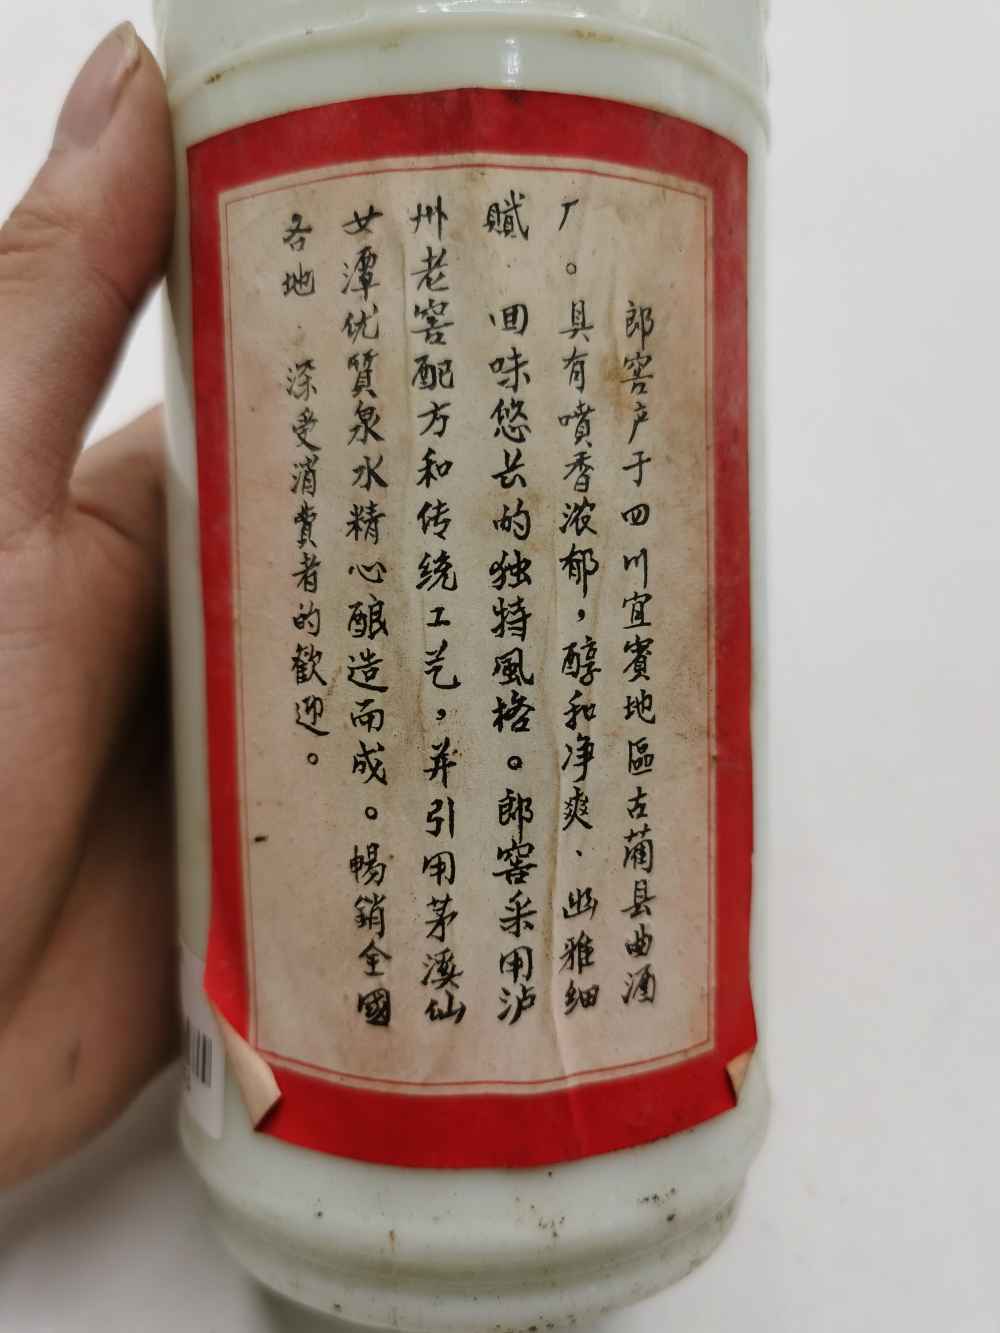 郎窖产于四川宜賓地區古藺县曲酒
厂。具有噴香浓郁，醇和净爽、幽雅细
腻 回味悠长的独特風格。郎窖采用泸
州老窖配方和传统工艺，并引用茅溪仙
女潭优質泉水精心酿造而成。暢銷全國
各地 深受消費者的歡迎。